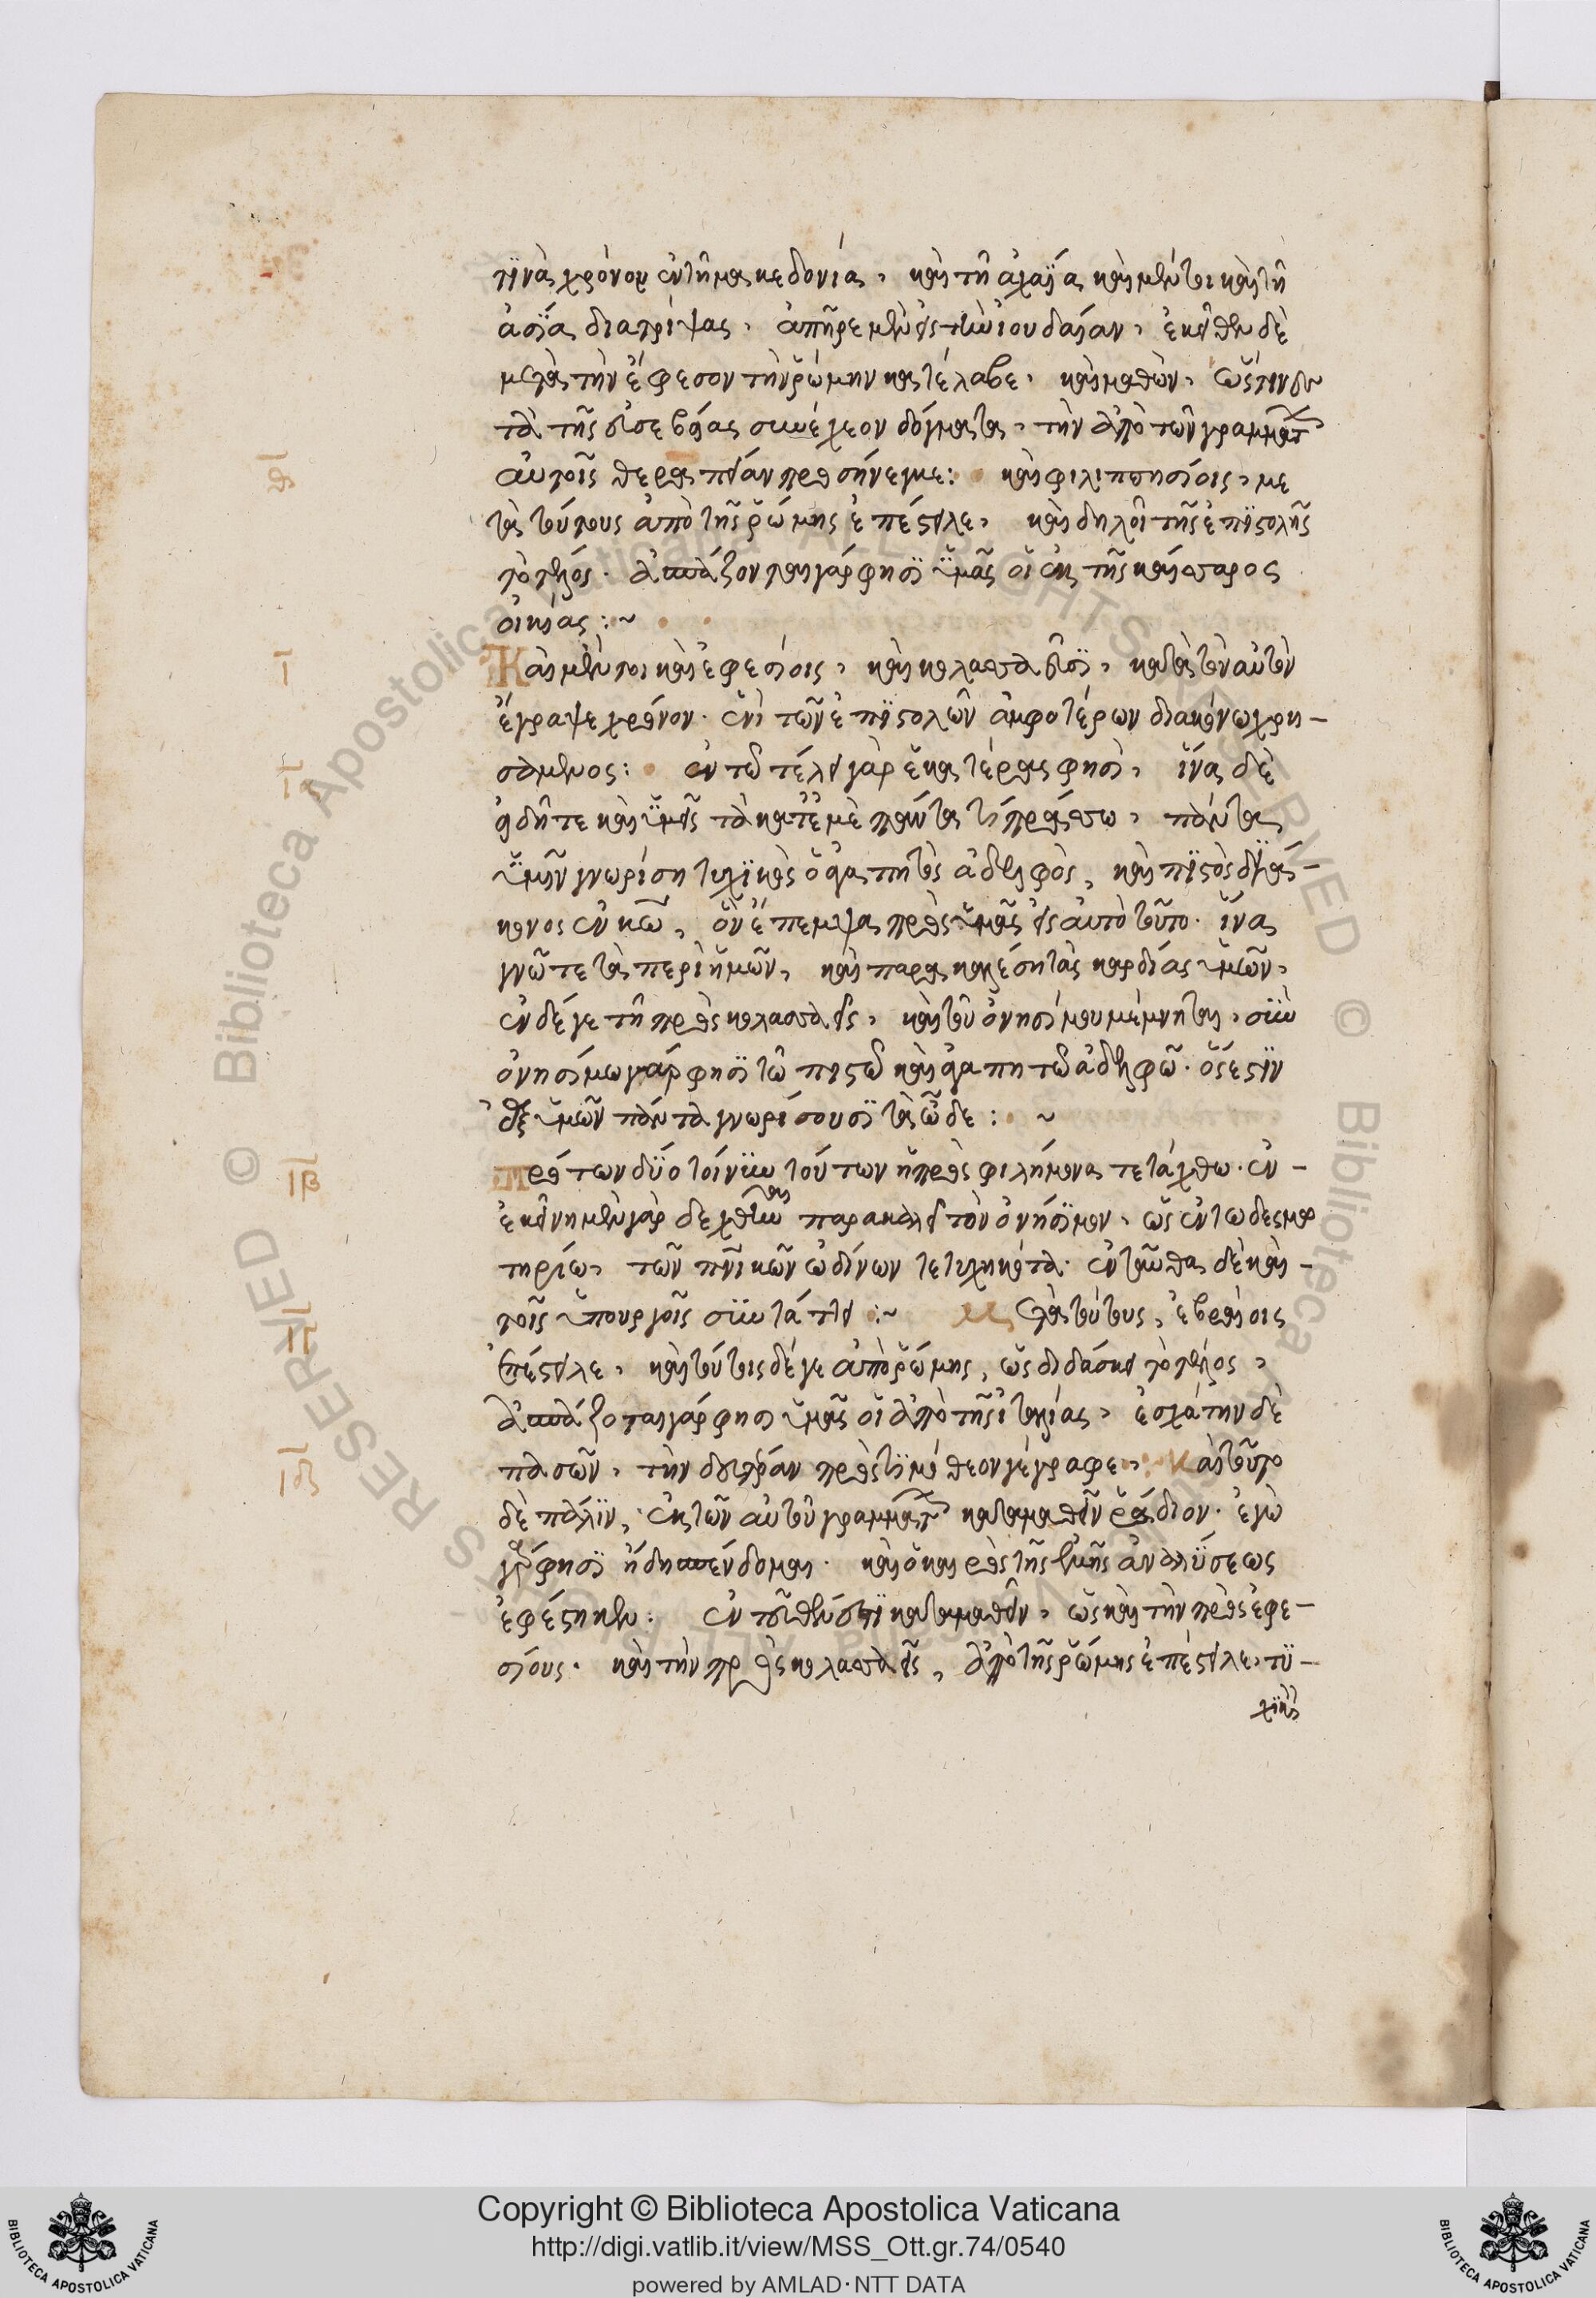 τινὰ χρόνον ἐν τῆ μακεδονία, καὶ τῆ ἀχαΐα καὶ μέντοι καὶ τῆ
ἀσία διατρίψας, ἀπῆρε μὲν εἰς τὴν ἰουδαίαν, ἐκεῖθεν δὲ
μετὰ τὴν ἔφεσον τὴν ῥώμην κατέλαβε, καὶ μαθὼν,
τὰ τῆς εὐσεβείας συνέχεον δόγματα, τὴν ἀπὸ τῶν γραμμάτ
αὐτοῖς θεραπείαν προσήνεγκε: καὶ φιλιππησίοις, με
τὰ τούτους ἀπὸ τῆς ῥώμης ἐπέστειλε, καὶ δηλοῖ τῆς ἐπιστολῆς
τὸ τέλος. ἀσπάζονται γάρ φησι ὑμᾶς οἱ ἐκ τῆς καίσαρος
οἰκίας :~
Καὶ μέντοι καὶ ἐφεσίοις, καὶ κολασσαεῦσι, κατὰ τὸν αὐτὸν
ἔγραψε χρόνον. ἑνὶ τῶν ἐπιστολῶν ἀμφοτέρων διακόνω χρη-
σάμενος: ἐν τῶ τέλει γὰρ ἑκατέρας φησὶ, ἵνα δὲ
εἰδῆτε καὶ ὑμεῖς τὰ κατ' ἐμὲ πάντα τί πράσσω, πάντα
ὑμῖν γνωρίση τυχικὸς ὁ ἀγαπητὸς ἀδελφὸς, καὶ πιστὸς διά-
κονος ἐν κω, ὃν ἔπεμψα πρὸς ὑμᾶς εἰς αὐτὸ τοῦτο. ἵνα
γνῶτε τὰ περὶ ἡμῶν, καὶ παρακαλέση τὰς καρδίας ὑμῶν,
ἐν δέ γε τῆ πρὸς κολασσαεῖς, καὶ τοῦ ὀνησίμου μέμνηται, σὺν
ὀνησίμω γάρ φησι τῶ πιστῶ καὶ ἀγαπητῶ ἀδελφῶ. ὅς ἐστιν
ἐξ ὑμῶν πάντα γνωρίσουσι τὰ ὧδε : ~
πρὸ των δύο τοίνυν τούτων ἡ πρὸς φιλήμονα τετάχθω. ἐν-
ἐκείνη μὲν γὰρ δεχθῆναι παρακαλεῖ τὸν ὀνήσιμον, ὡς ἐν τω δεσμω
τηρίω, τῶν πνικῶν ὠδίνων τετυχηκότα. ἐνταῦθα δὲ καὶ-
τοῖς ὑπουργοῖς συντάττει :~ Μετὰ τούτους, ἑβραίοις
ἐπέστειλε, καὶ τούτοις δέ γε ἀπὸ ῥώμης, ὡς διδάσκει τὸ τέλος,
ἀσπάζοται γάρ φησι ὑμᾶς οἱ ἀπὸ τῆς ἰταλίας, ἐσχάτην δὲ
πασῶν, τὴν δευτέραν πρὸς τιμόθεον γέγραφε, Καὶ τοῦτο
δὲ πάλιν, ἐκ τῶν αὐτοῦ γραμμάτ καταμαθεῖν ῥάδιον. ἐγὼ
γάρ φησι ἤδη σπένδομαι. καὶ ὁ καιρὸς τῆς ἐμῆς ἀναλύσεως
ἐφέστηκεν: ἐντεῦθεν ἔστι καταμαθεῖν, ὡς καὶ τὴν πρὸς ἐφε-
σίους. καὶ τὴν πρὸς κολασσαεῖς, ἀπὸ τῆς ῥώμης ἐπέστειλε, τυ-
χικὸς
θ
ι
ια
ιβ
ιγ
ιδ
Copyright © Biblioteca Apostolica Vaticana
http://digi.vatlib.it/view/MSS_Ott.gr.74/0540
powered by AMLAD·NTT DATA
BIBLIOTECA APOSTOLICA VATICANA
BIBLIOTECA APOSTOLICA VATICANA
© Biblioteca Apostolica Vaticana ALL RIGHTS RESERVED
© Biblioteca Apostolica Vaticana ALL RIGHTS RESERVED